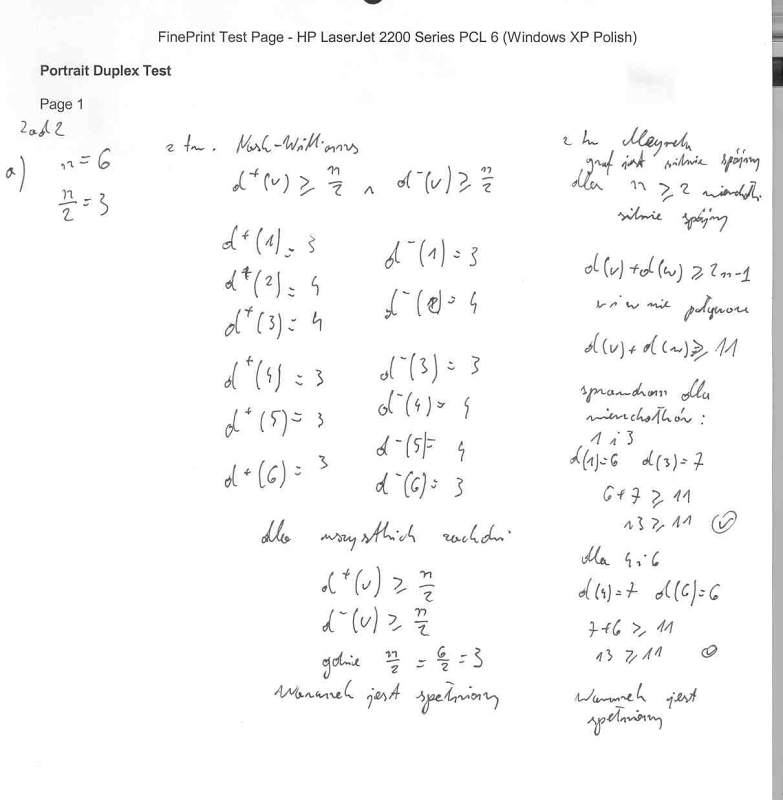 FinePrint Test Page - HP LaserJet 2200 Series PCL 6 (Windows XP Polish)
Portrait Duplex Test
Page 1
Zad 2
a) n = 6
n/2 = 3
z tw. Nash-Williams
d⁺(v) ≥ n/2 ∧ d⁻(v) ≥ n/2
d⁺(1) = 3
d⁺(2) = 4
d⁺(3) = 4
d⁺(4) = 3
d⁺(5) = 3
d⁺(6) = 3
d⁻(1) = 3
d⁻(2) = 4
d⁻(3) = 3
d⁻(4) = 4
d⁻(5) = 4
d⁻(6) = 3
dla wszystkich zachodzi
d⁺(v) ≥ n/2
d⁻(v) ≥ n/2
gdzie n/2 = 6/2 = 3
Warunek jest spełniony
z tw
graf jest silnie spójny
dla n ≥ 2
silnie spójny
d(v) + d(w) ≥ 2n-1
v i w nie
d(v) + d(w) ≥ 11
dla
1 i 3
d(1)=6 d(3)=7
6+7 ≥ 11
13 ≥ 11 ✓
dla 4 i 6
d(4)=7 d(6)=6
7+6 ≥ 11
13 ≥ 11 ✓
Warunek jest
spełniony